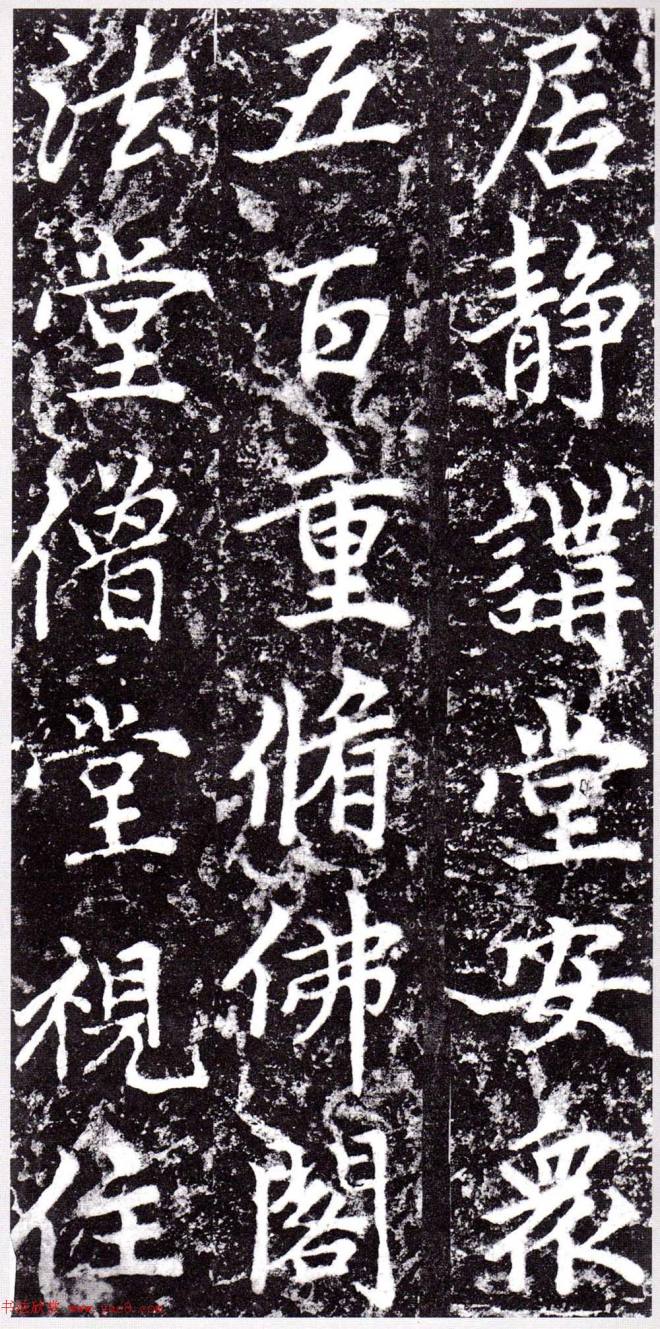 居静講堂安衆
五百重脩佛閣
法堂僧堂視住
书法欣赏 www.yac8.com